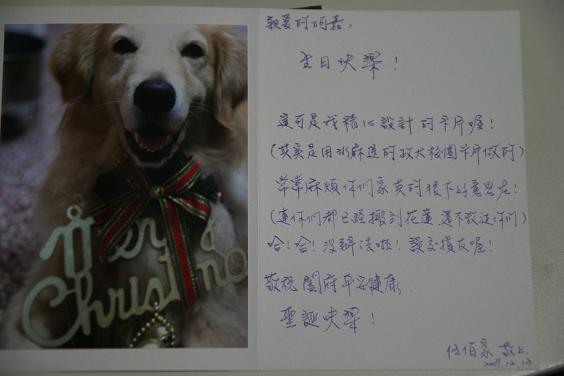 親愛的阿嘉，
生日快樂！
這可是我精心設計的卡片喔！
(其實是用水麻送的政大校園卡片做的)
常常麻煩你們家真的很不好意思在！
(連你們都已經搬到花蓮還不放過你們)
哈！哈！沒辦法啦！誤交損友喔！
敬祝 闔府平安健康．
聖誕快樂！
Merry
Christmas
敬上